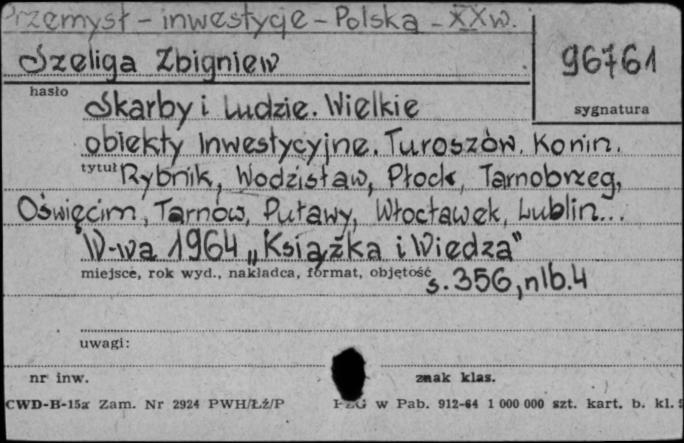 Przemysł - inwestycje - Polska - XX w.
Szeliga Zbigniew
96761
hasło
sygnatura
Skarby i ludzie. Wielkie
obiekty inwestycyjne. Turoszów. Konin.
tytuł Rybnik, Wodzisław, Płock, Tarnobrzeg,
Oświęcim, Tarnów, Puławy, Włocławek, Lublin...
W-wa 1964 „Książka i Wiedza"
miejsce, rok wyd., nakładca, format, objętość
s. 356, nlb. 4
uwagi:
nr inw.
znak klas.
CWD-B-15a Zam. Nr 2924 PWH/Łż/P
w Pab. 912-64 1 000 000 szt. kart. b. kl.